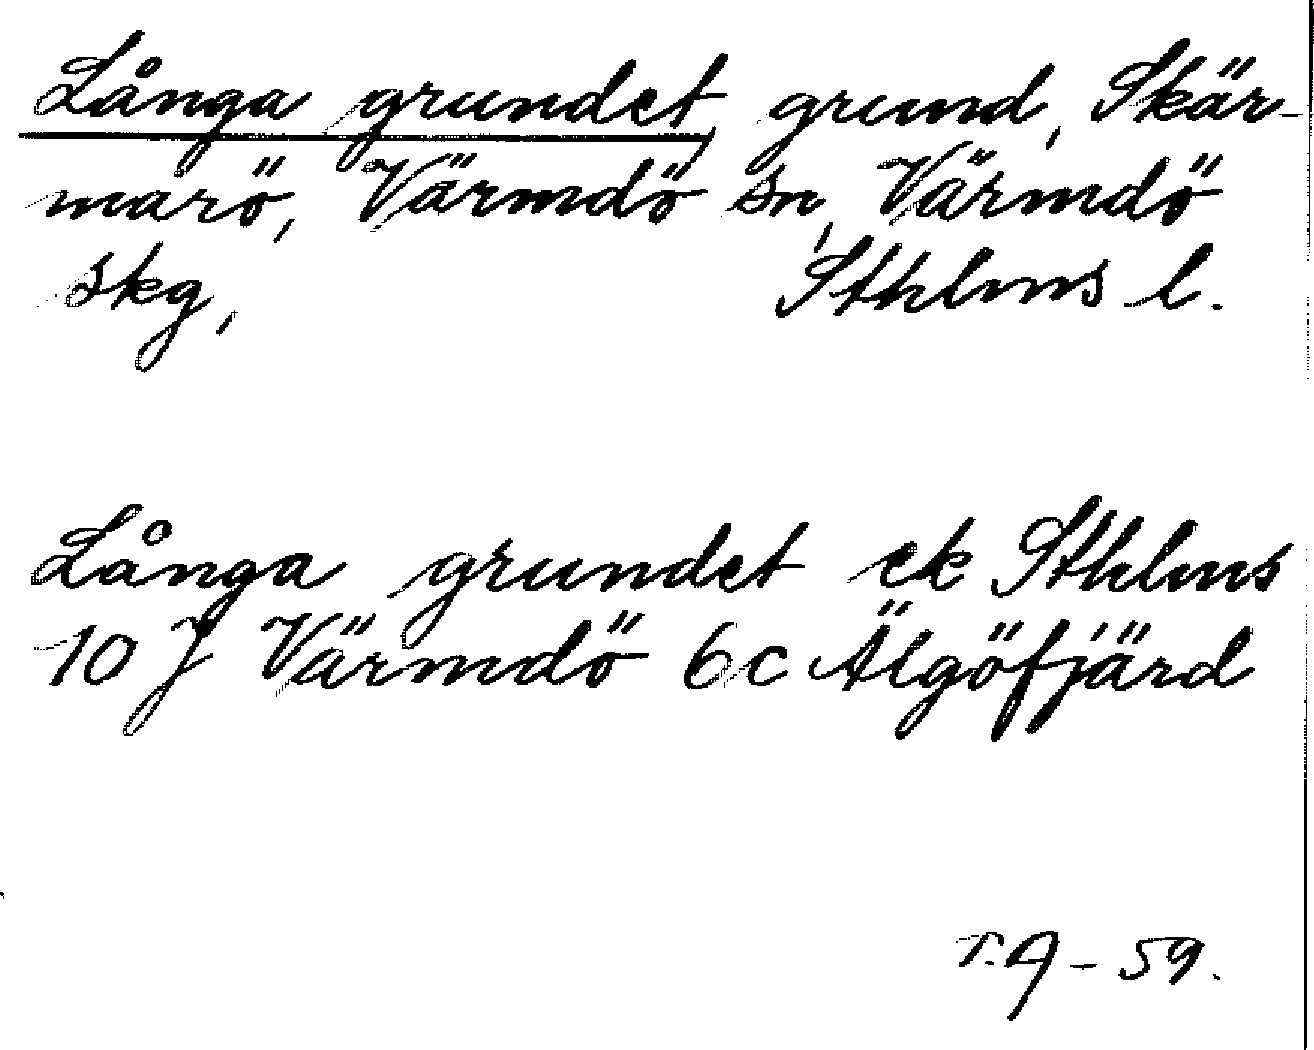 Långa grundet, grund, Skär-
marö, Värmdö sn, Värmdö
skg, Sthlms l.
Långa grundet ek Sthlms
10 J Värmdö 6c Älgöfjärd
T.A - 59.